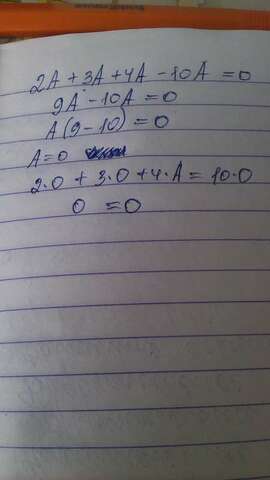 2A + 3A + 4A - 10A = 0
9A - 10A = 0
A(9-10) = 0
A = 0
2·0 + 3·0 + 4·A = 10·0
0 = 0